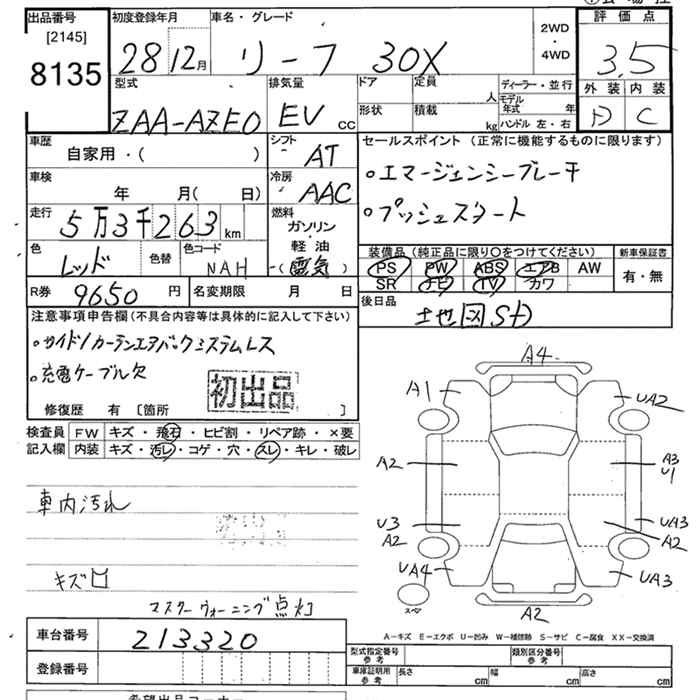 出品番号 初度登録年月 車名・グレード 評価点
[2145]
8135 28 12月 リーフ 30X 2WD・4WD 3.5
外装 内装
D C
型式 排気量 ドア 定員 人 ディーラー・並行
ZAA-AZE0 EV cc 形状 積載 kg モデル年式 年
ハンドル 左・右
車歴 シフト セールスポイント (正常に機能するものに限ります)
自家用・( ) AT
・エマージェンシーブレーキ
車検 冷房
年 月( 日) AAC
・プッシュスタート
走行 燃料
5万3千263km ガソリン・軽油
-(電気)
色 色替 色コード 装備品(純正品に限り○をつけてください) 新車保証書
レッド NAH PS PW ABS エアB AW 有・無
SR ナビ TV カワ
R券 9650円 名変期限 月 日 後日品
注意事項申告欄(不具合内容等は具体的に記入して下さい)
・サイド/カーテンエアバックシステムレス
・充電ケーブル欠
初出品
修復歴 有 [箇所 ]
検査員記入欄 FW キズ・飛石・ヒビ割・リペア跡・×要
内装 キズ・汚レ・コゲ・穴・スレ・キレ・破レ
車内汚れ
キズ
マスターウォーニング点灯
A4
A1 UA2
A2 A3
U1
U3 UA3
A2 A2
UA4 UA3
スペア A2
A-キズ E-エクボ U-凹み W-補修跡 S-サビ C-腐食 XX-交換済
車台番号 213320 型式指定番号 参考 類別区分番号 参考
登録番号 車庫証明用 参考 長さ cm 幅 cm 高さ cm